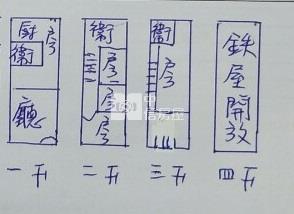 廚 房
衛
廳
一 F
衛
房
房
房
二 F
衛
房
三 F
鉄
屋
開
放
四 F